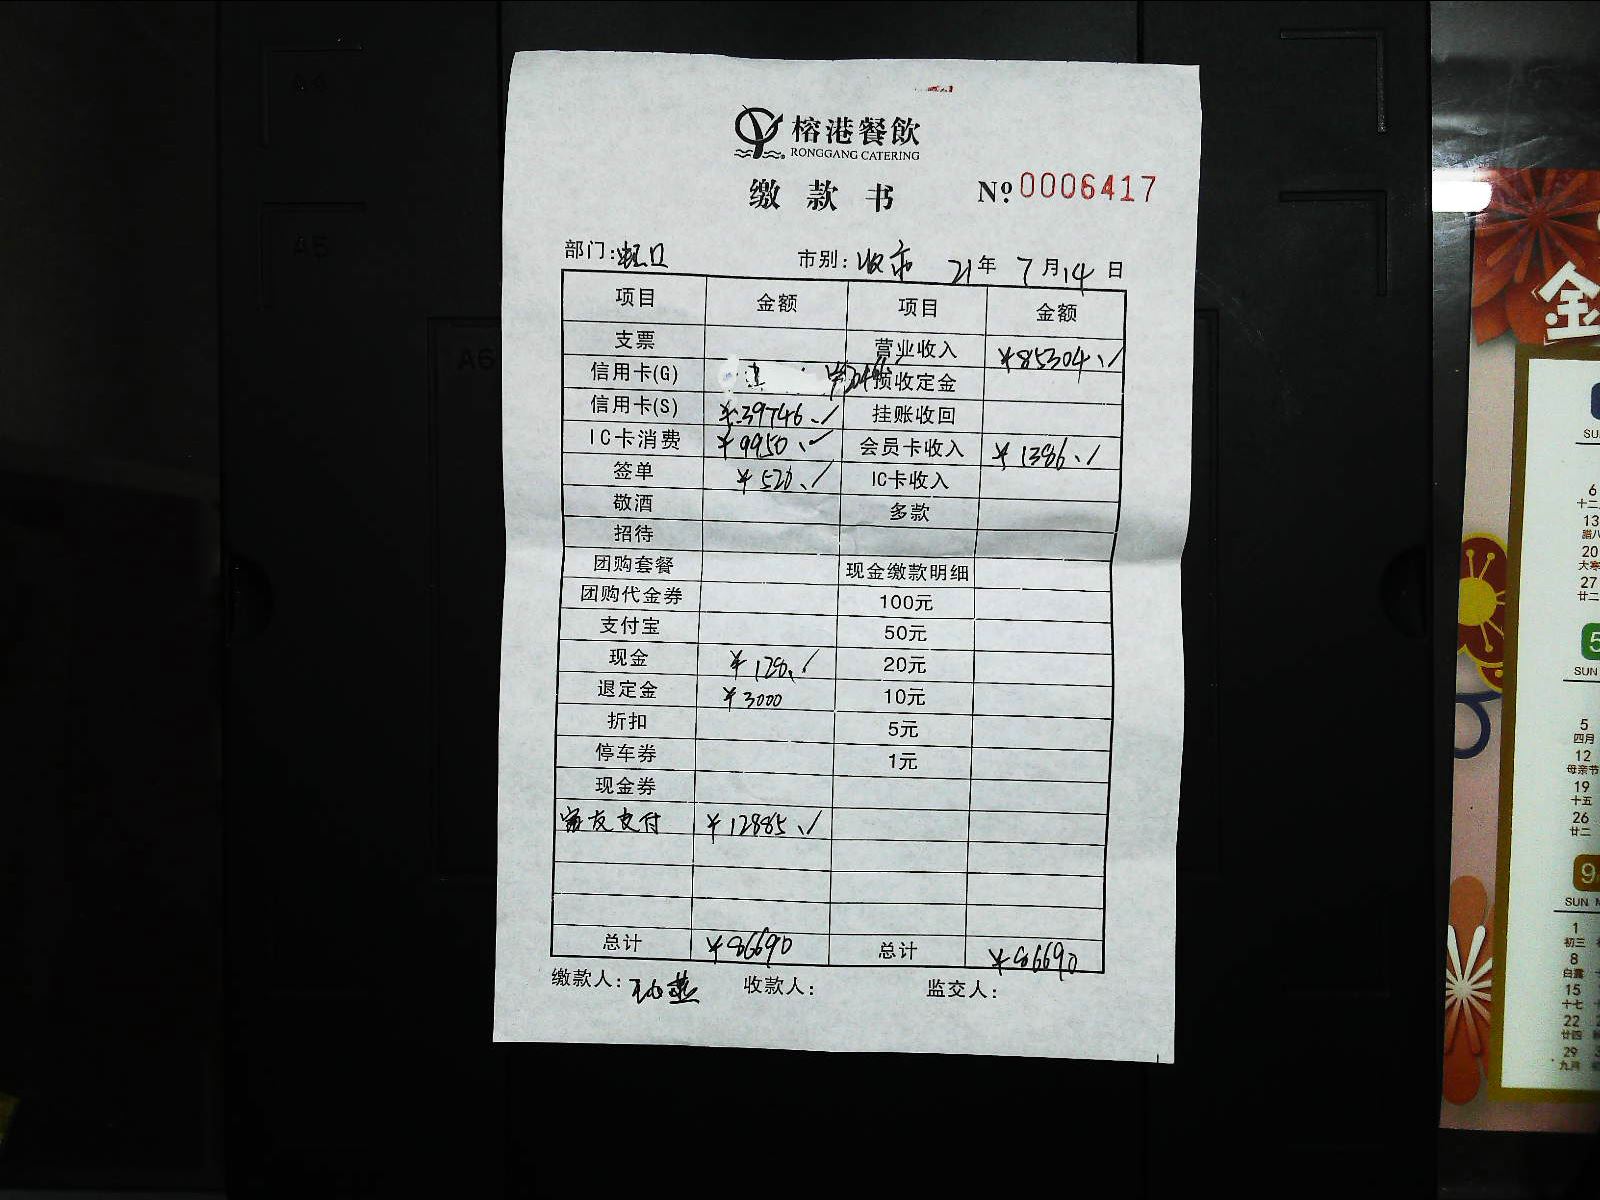 榕港餐飲
RONGGANG CATERING
缴款书 №0006417
部门:虹口 市别:收市 21年7月14日
项目 金额 项目 金额
支票 营业收入 ¥85304.
信用卡(G) 预收定金
信用卡(S) ¥39746. 挂账收回
IC卡消费 ¥9950. 会员卡收入 ¥1386.
签单 ¥520. IC卡收入
敬酒 多款
招待
团购套餐 现金缴款明细
团购代金券 100元
支付宝 50元
现金 ¥128. 20元
退定金 ¥3000 10元
折扣 5元
停车券 1元
现金券
支付 ¥12885.
总计 ¥86690 总计 ¥86690
缴款人: 收款人: 监交人:
A4
A5
A6
金
SUN
6
十二
13
腊八
20
大寒
27
廿二
5
SUN
5
四月
12
母亲节
19
十五
26
廿二
9
SUN
1
初三
8
白露
15
十七
22
廿四
29
九月